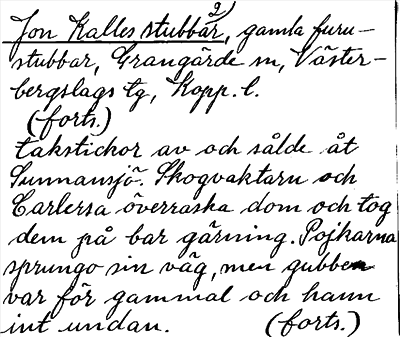 2)
Jon Kalles stubbar, gamla furu-
stubbar, Grangärde sn, Väster-
bergslags tg, Kopp. l.
(forts.)
takstickor av och sålde åt
Sunnansjö. Skogvaktarn och
Carlersa överraska dom och tog
dem på bar gärning. Pojkarna
sprungo sin väg, men gubben
var för gammal och hann
int undan. (forts.)